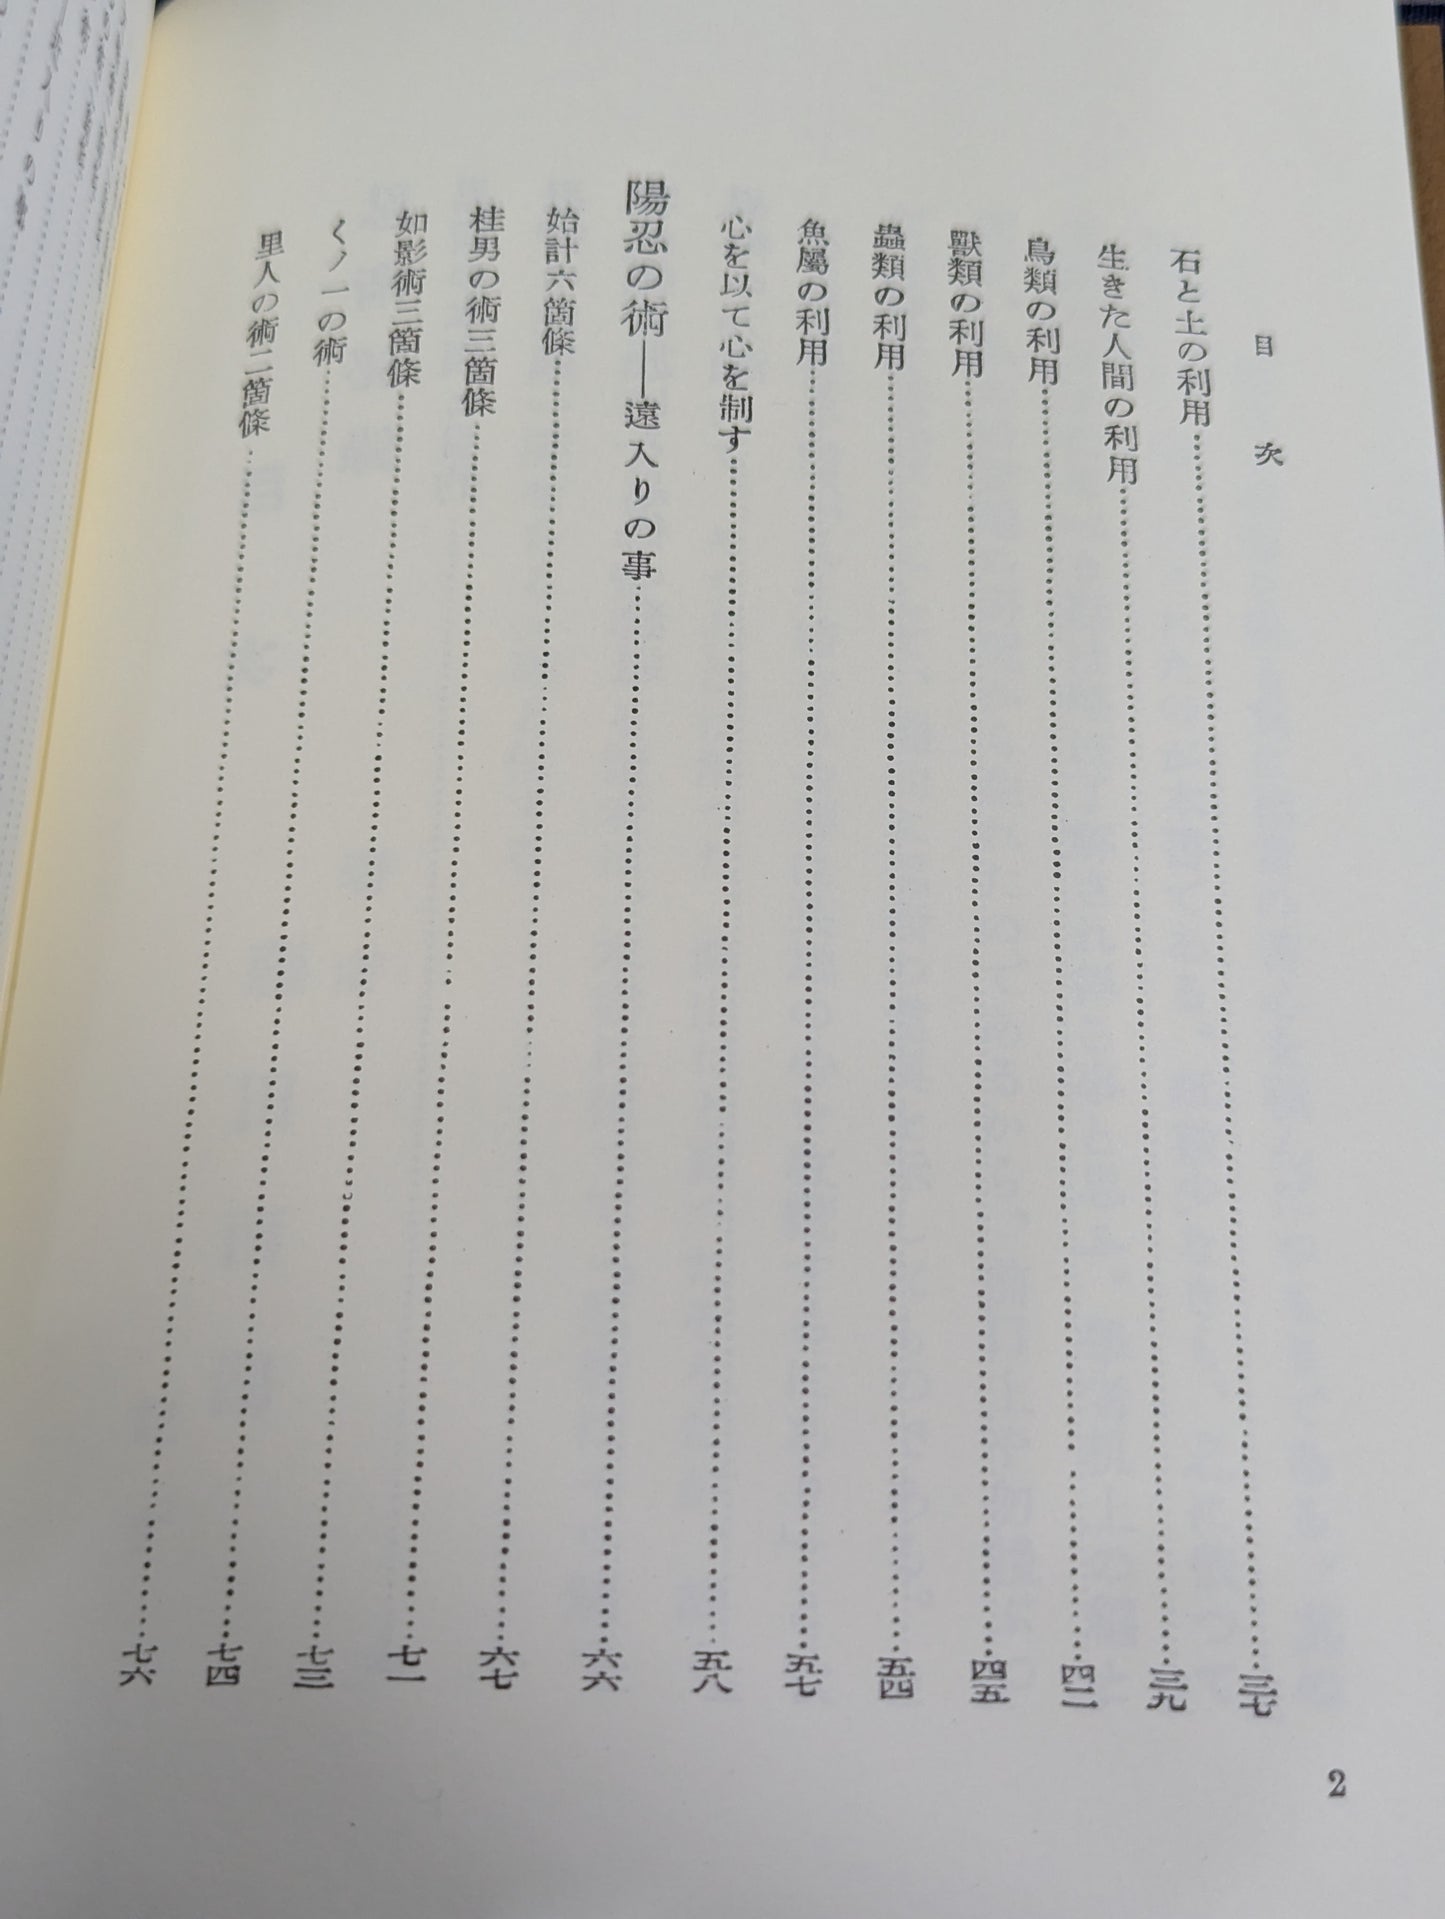 目次
石と土の利用……三七
生きた人間の利用……三九
鳥類の利用……四二
獸類の利用……四五
蟲類の利用……五四
魚屬の利用……五七
心を以て心を制す……五八
陽忍の術——遠入りの事……六六
始計六箇條……六七
桂男の術三箇條……七一
如影術三箇條……七三
くノ一の術……七四
里人の術二箇條……七六
2